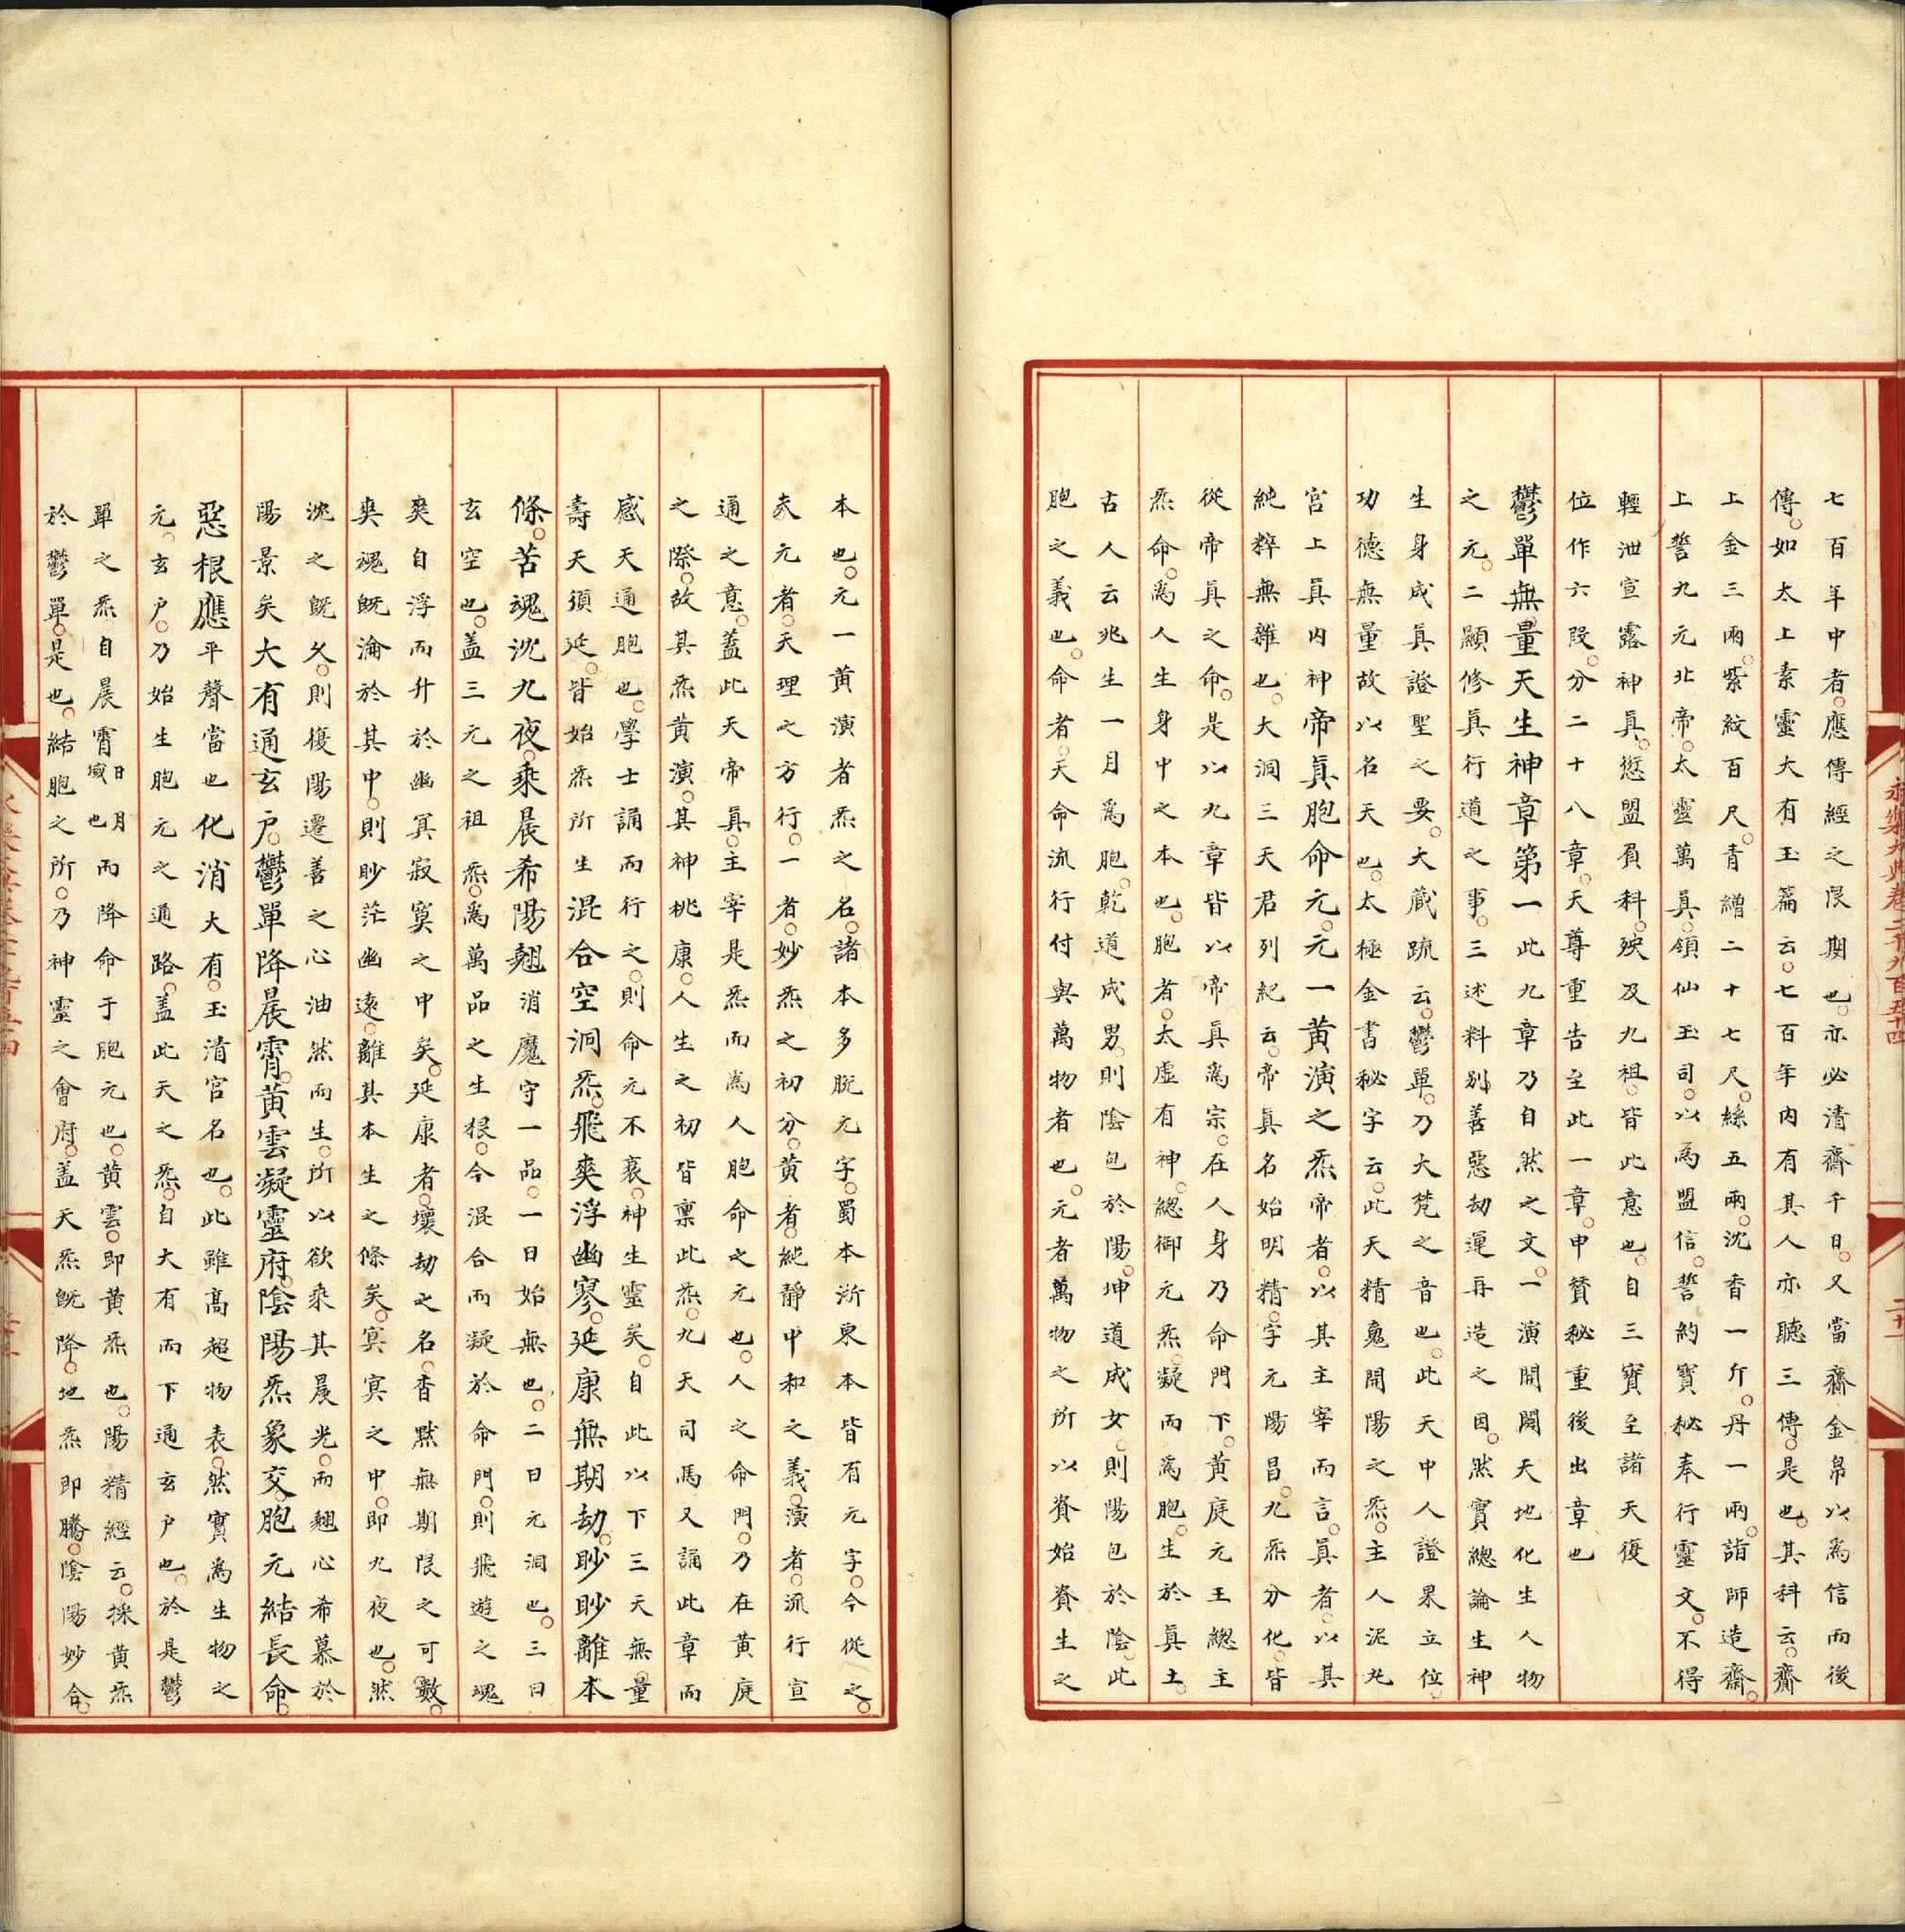 七百年中者應傳經之限期也亦必清齋千日又當齋金帛以爲信而後
傳如太上素靈大有玉篇云七百年內有其人亦聽三傳是也其科云齋
上金三兩紫紋百尺青繒二十七尺絲五兩沈香一斤丹一兩詣師造齋
上誓九元北帝太靈萬真領仙玉司以爲盟信誓約寶秘奉行靈文不得
輕泄宣露神真愆盟負科殃及九祖皆此意也自三寶至諸天復
位作六段分二十八章天尊重告至此一章中贊秘重後出章也
鬱單無量天生神章第一此九章乃自然之文一演開闢天地化生人物
之元二顯修真行道之事三述料別善惡劫運再造之因然實總論生神
生身成真證聖之要大藏疏云鬱單乃大梵之音也此天中人證果立位
功德無量故以名天也太極金書秘字云此天精䰟開陽之炁主人泥丸
宮上真內神帝真胞命元元一黃演之炁帝者以其主宰而言真者以其
純粹無雜也大洞三天君列紀云帝真名始明精字元陽昌九炁分化皆
從帝真之命是以九章皆以帝真爲宗在人身乃命門下黃庭元王總主
炁命爲人生身中之本也胞者太虛有神總御元炁凝而爲胞生於真土
古人云兆生一月爲胞乾道成男則陰包於陽坤道成女則陽包於陰此
胞之義也命者天命流行付與萬物者也元者萬物之所以資始資生之
本也元一黃演者炁之名諸本多脫元字蜀本浙東本皆有元字今從之
炁元者天理之方行一者妙炁之初分黃者純靜中和之義演者流行宣
通之意蓋此天帝真主宰是炁而爲人胞命之元也人之命門乃在黃庭
之際故其炁黃演其神桃康人生之初皆稟此炁九天司馬又誦此章而
感天通胞也學士誦而行之則命元不衰神生靈矣自此以下三天無量
壽天須延皆始炁所生混合空洞炁飛爽浮幽寥延康無期劫眇眇離本
條苦魂沈九夜乘晨希陽翹消魔守一品一日始無也二日元洞也三曰
玄空也盖三元之祖炁爲萬品之生根今混合而凝於命門則飛遊之魂
爽自浮而升於幽冥寂寞之中矣延康者壞劫之名杳默無期限之可數
爽魂既淪於其中則眇茫幽遠離其本生之條矣冥冥之中即九夜也然
沈之既久則復陽遷善之心油然而生所以欲乘其晨光而翹心希慕於
陽景矣大有通玄戶鬱單降晨霄黃雲凝靈府陰陽炁象交胞元結長命
惡根應平聲當也化消大有玉清宮名也此雖高超物表然實爲生物之
元玄戶乃始生胞元之通路盖此天之炁自大有而下通玄戶也於是鬱
單之炁自晨霄日月域也而降命于胞元也黃雲即黃炁也陽精經云採黃炁
於鬱單是也結胞之所乃神靈之會府盖天炁既降地炁即騰陰陽妙合